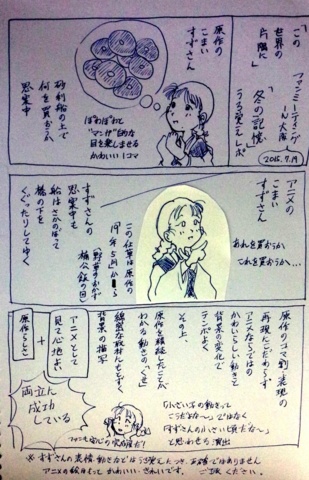 この
世界の
片隅に
ファンミーティング
IN大阪
「冬の記憶」
うろ覚えレポ
2015.7.19
原作の
こまい
すずさん
ほわほわって
“マンガ”的な
目を楽しませる
かわいい1コマ
砂利船の上で
何を買おうか
思案中
アニメの
こまい
すずさん
あれを買おうか
これを買おうか…
すずさんの
思案中も
船はさかのぼって
橋の下を
くぐったりしてゆく
この仕草は原作の
19年5月
「野草のおかず
楠公飯の回」
原作のコマ割り表現の
再現にこだわらず
アニメならではの
かわいらしい動きと
背景の変化で
テンポよく
その上、
原作を精読したことが
わかる動きの「くせ」
綿密な取材にもとづく
背景の描写
原作らしさ
+
アニメとして
見て心地よい
両立に
成功
している
「小さい子の動きって
こうだよな〜」ではなく
「すずさんの小さい頃だな〜」
と思わせる演出
※すずさんの表情、動きなどはうろ覚えにつき、正確ではありません
アニメの絵はもっとかわいい、きれいです。ご承ください。